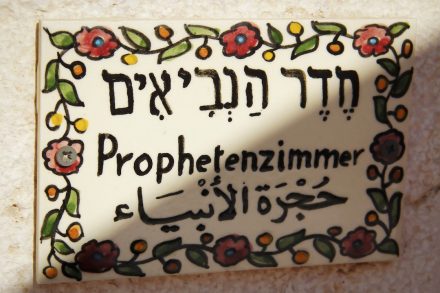 חֶדֶר הַנְּבִיאִים
Prophetenzimmer
حُجْرَة الأَنْبِيَاء